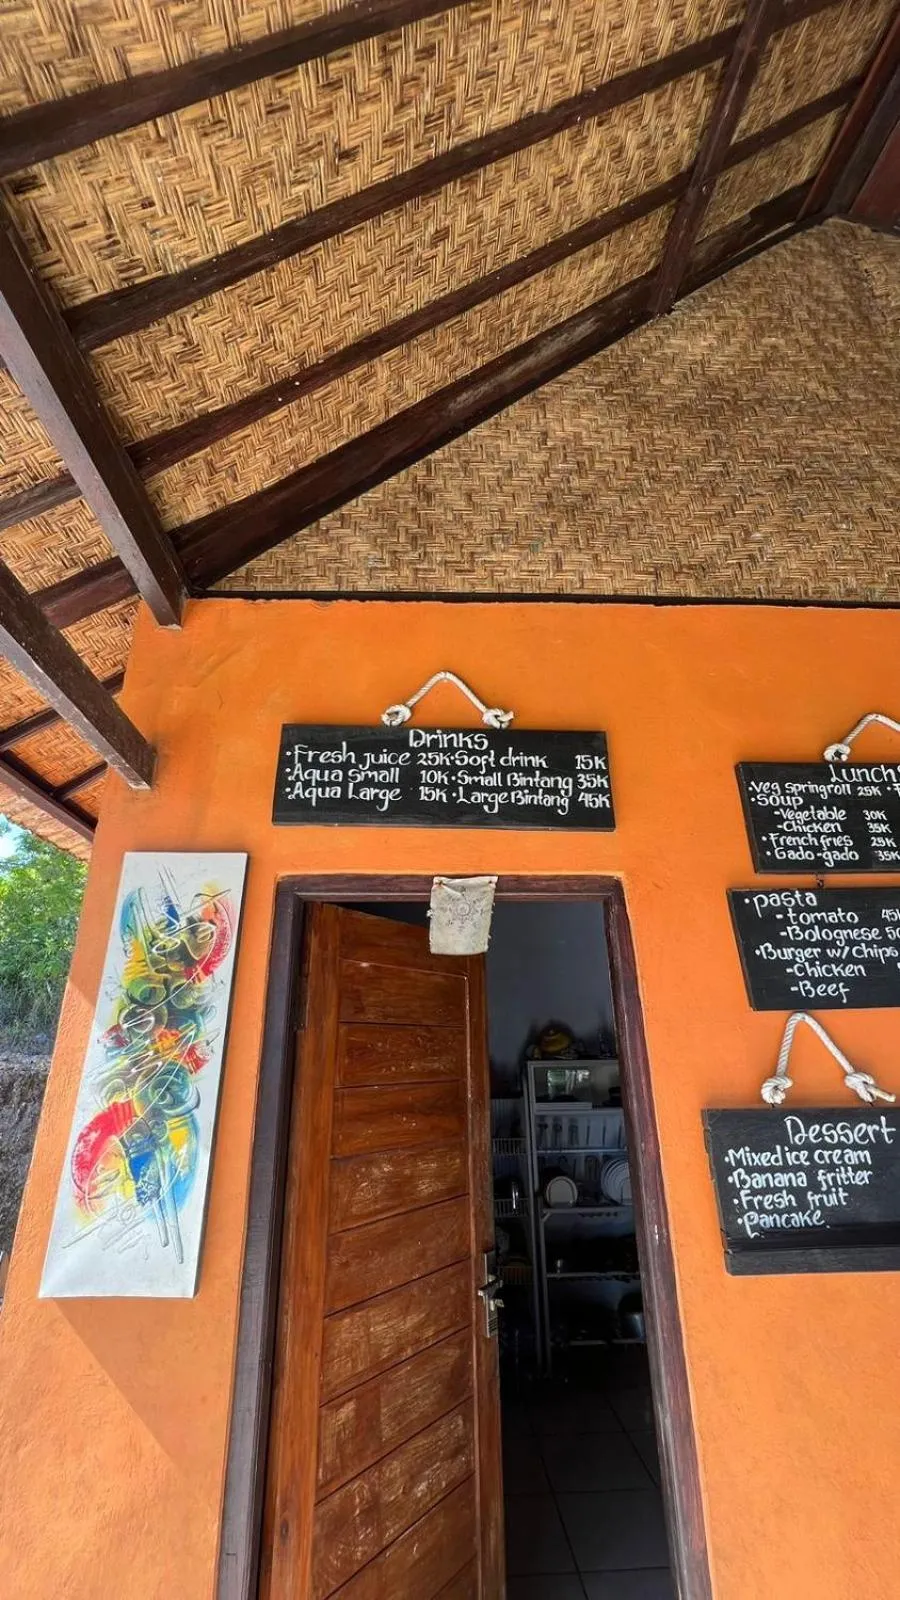 Drinks
•Fresh juice 25K•Soft drink 15K
•Aqua small 10K•Small Bintang 35K
•Aqua Large 15K•Large Bintang 45K
Lunch
•Veg springroll 25K •
•Soup
-Vegetable 30K
-Chicken 35K
•French fries 25K
•Gado-gado 35K
•pasta
-tomato 45
-Bolognese 50
•Burger w/ Chips
-Chicken
-Beef
Dessert
•Mixed ice cream
•Banana fritter
•Fresh fruit
•Pancake